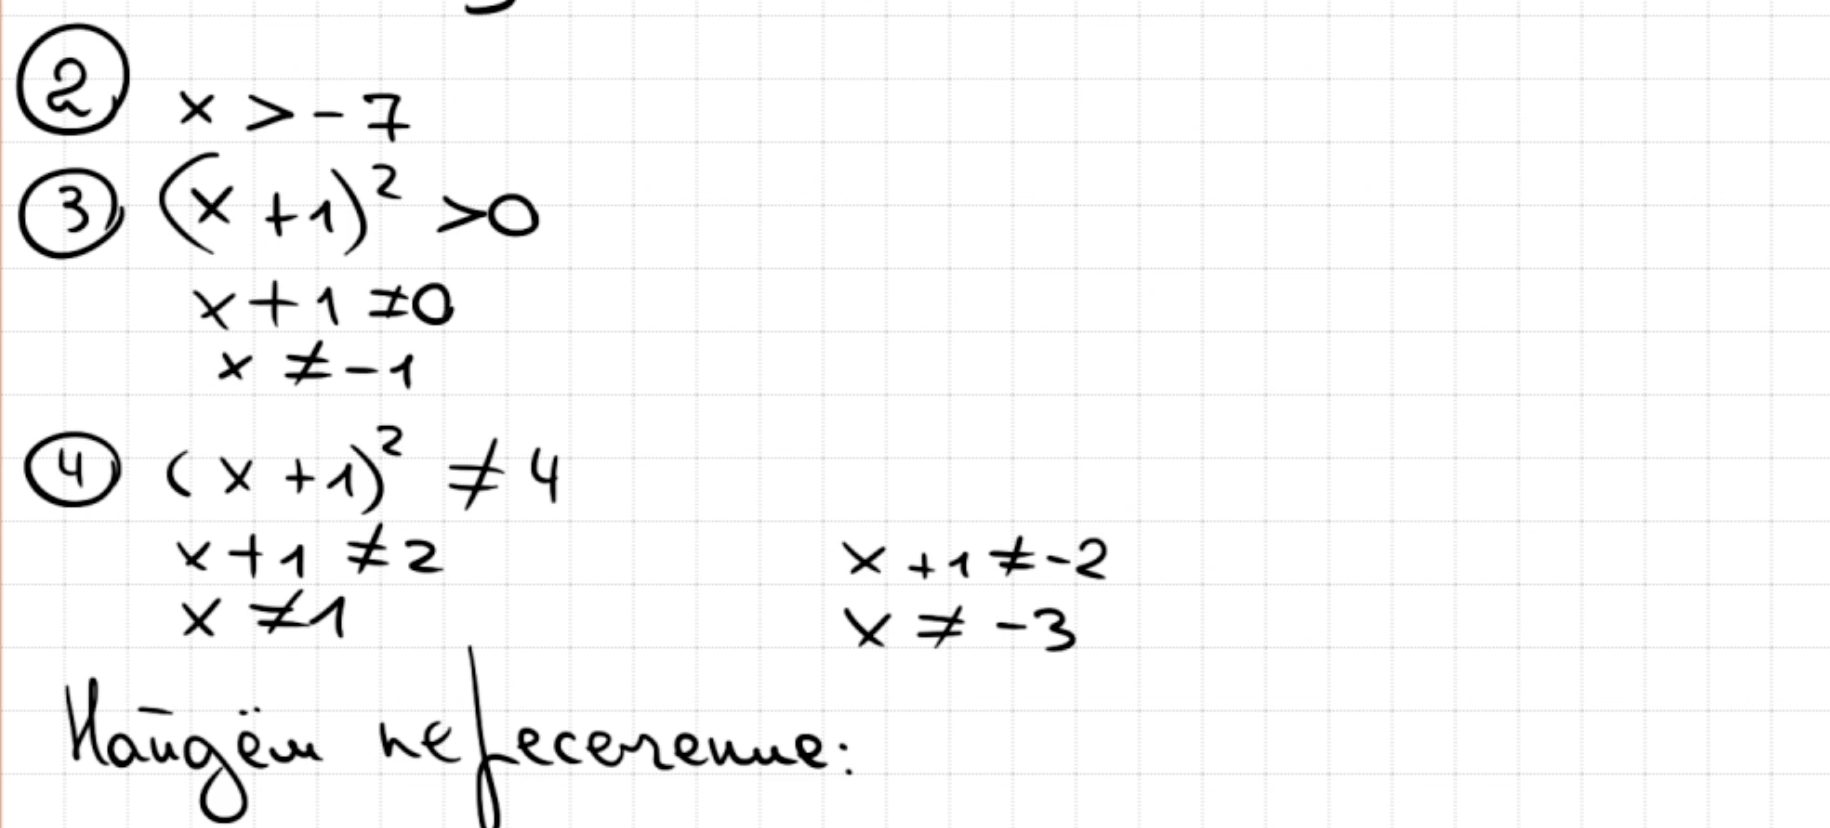 2) x > -7
3) (x + 1)² > 0
x + 1 ≠ 0
x ≠ -1
4) (x + 1)² ≠ 4
x + 1 ≠ 2 x + 1 ≠ -2
x ≠ 1 x ≠ -3
Найдём пересечение: